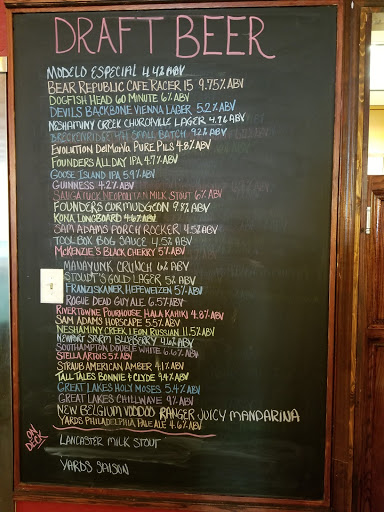 DRAFT BEER
MODELO ESPECIAL 4.4% ABV
BEAR REPUBLIC CAFE RACER 15 9.75% ABV
DOGFISH HEAD 60 MINUTE 6% ABV
DEVILS BACKBONE VIENNA LAGER 5.2% ABV
NESHAMINY CREEK CHURCHVILLE LAGER 4.9% ABV
BRECKENRIDGE SMALL BATCH 9.2% ABV
EVOLUTION DelMarVa PURE PILS 4.8% ABV
FOUNDERS ALL DAY IPA 4.7% ABV
GOOSE ISLAND IPA 5.9% ABV
GUINNESS 4.2% ABV
SAUGATUCK NEOPOLITAN MILK STOUT 6% ABV
FOUNDERS CURMUDGEON 9.8% ABV
KONA LONGBOARD 4.6% ABV
SAM ADAMS PORCH ROCKER 4.5% ABV
TOOL BOX BOG SAUCE 4.5% ABV
MCKENZIE'S BLACK CHERRY 5% ABV
MANAYUNK CRUNCH 6% ABV
STOUDT'S GOLD LAGER 5% ABV
FRANZISKANER HEFEWEIZEN 5% ABV
ROGUE DEAD GUY ALE 6.5% ABV
RIVERTOWNE POURHOUSE HALA KAHIKI 4.8% ABV
SAM ADAMS HOPSCAPE 5.5% ABV
NESHAMINY CREEK LEON RUSSIAN 11.5% ABV
NEWPORT STORM BLUEBERRY 4.6% ABV
SOUTHAMPTON DOUBLE WHITE 6.6% ABV
STELLA ARTOIS 5% ABV
STRAUB AMERICAN AMBER 4.1% ABV
TALL TALES BONNIE & CLYDE 9.4% ABV
GREAT LAKES HOLY MOSES 5.4% ABV
GREAT LAKES CHILLWAVE 9% ABV
NEW BELGIUM VOODOO RANGER JUICY MANDARINA
YARDS PHILADELPHIA PALE ALE 4.6% ABV
ON DECK
LANCASTER MILK STOUT
YARDS SAISON